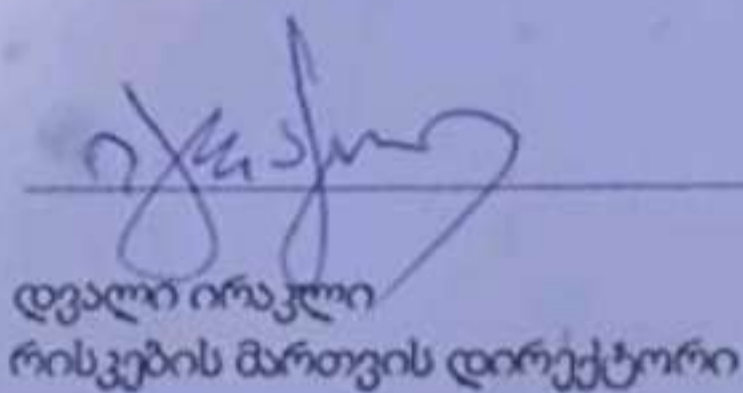 დვალი ირაკლი
რისკების მართვის დირექტორი